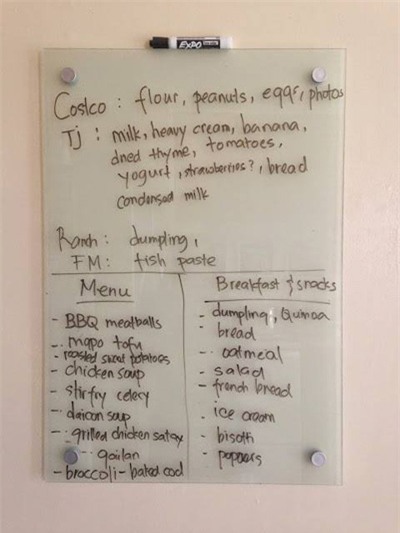 EXPO
Costco : flour, peanuts, eggs, photos
TJ : milk, heavy cream, banana,
dried thyme, tomatoes,
yogurt, strawberries?, bread
condensed milk
Ranch : dumpling,
FM : fish paste
Menu
- BBQ meatballs
- mapo tofu
- roasted sweet potatoes
- chicken soup
- stirfry celery
- daicon soup
- grilled chicken satay
- gailan
- broccoli - baked cod
Breakfast & snacks
- dumpling, Quinoa
- bread
- oatmeal
- salad
- french bread
. ice cream
- biscotti
- poppers